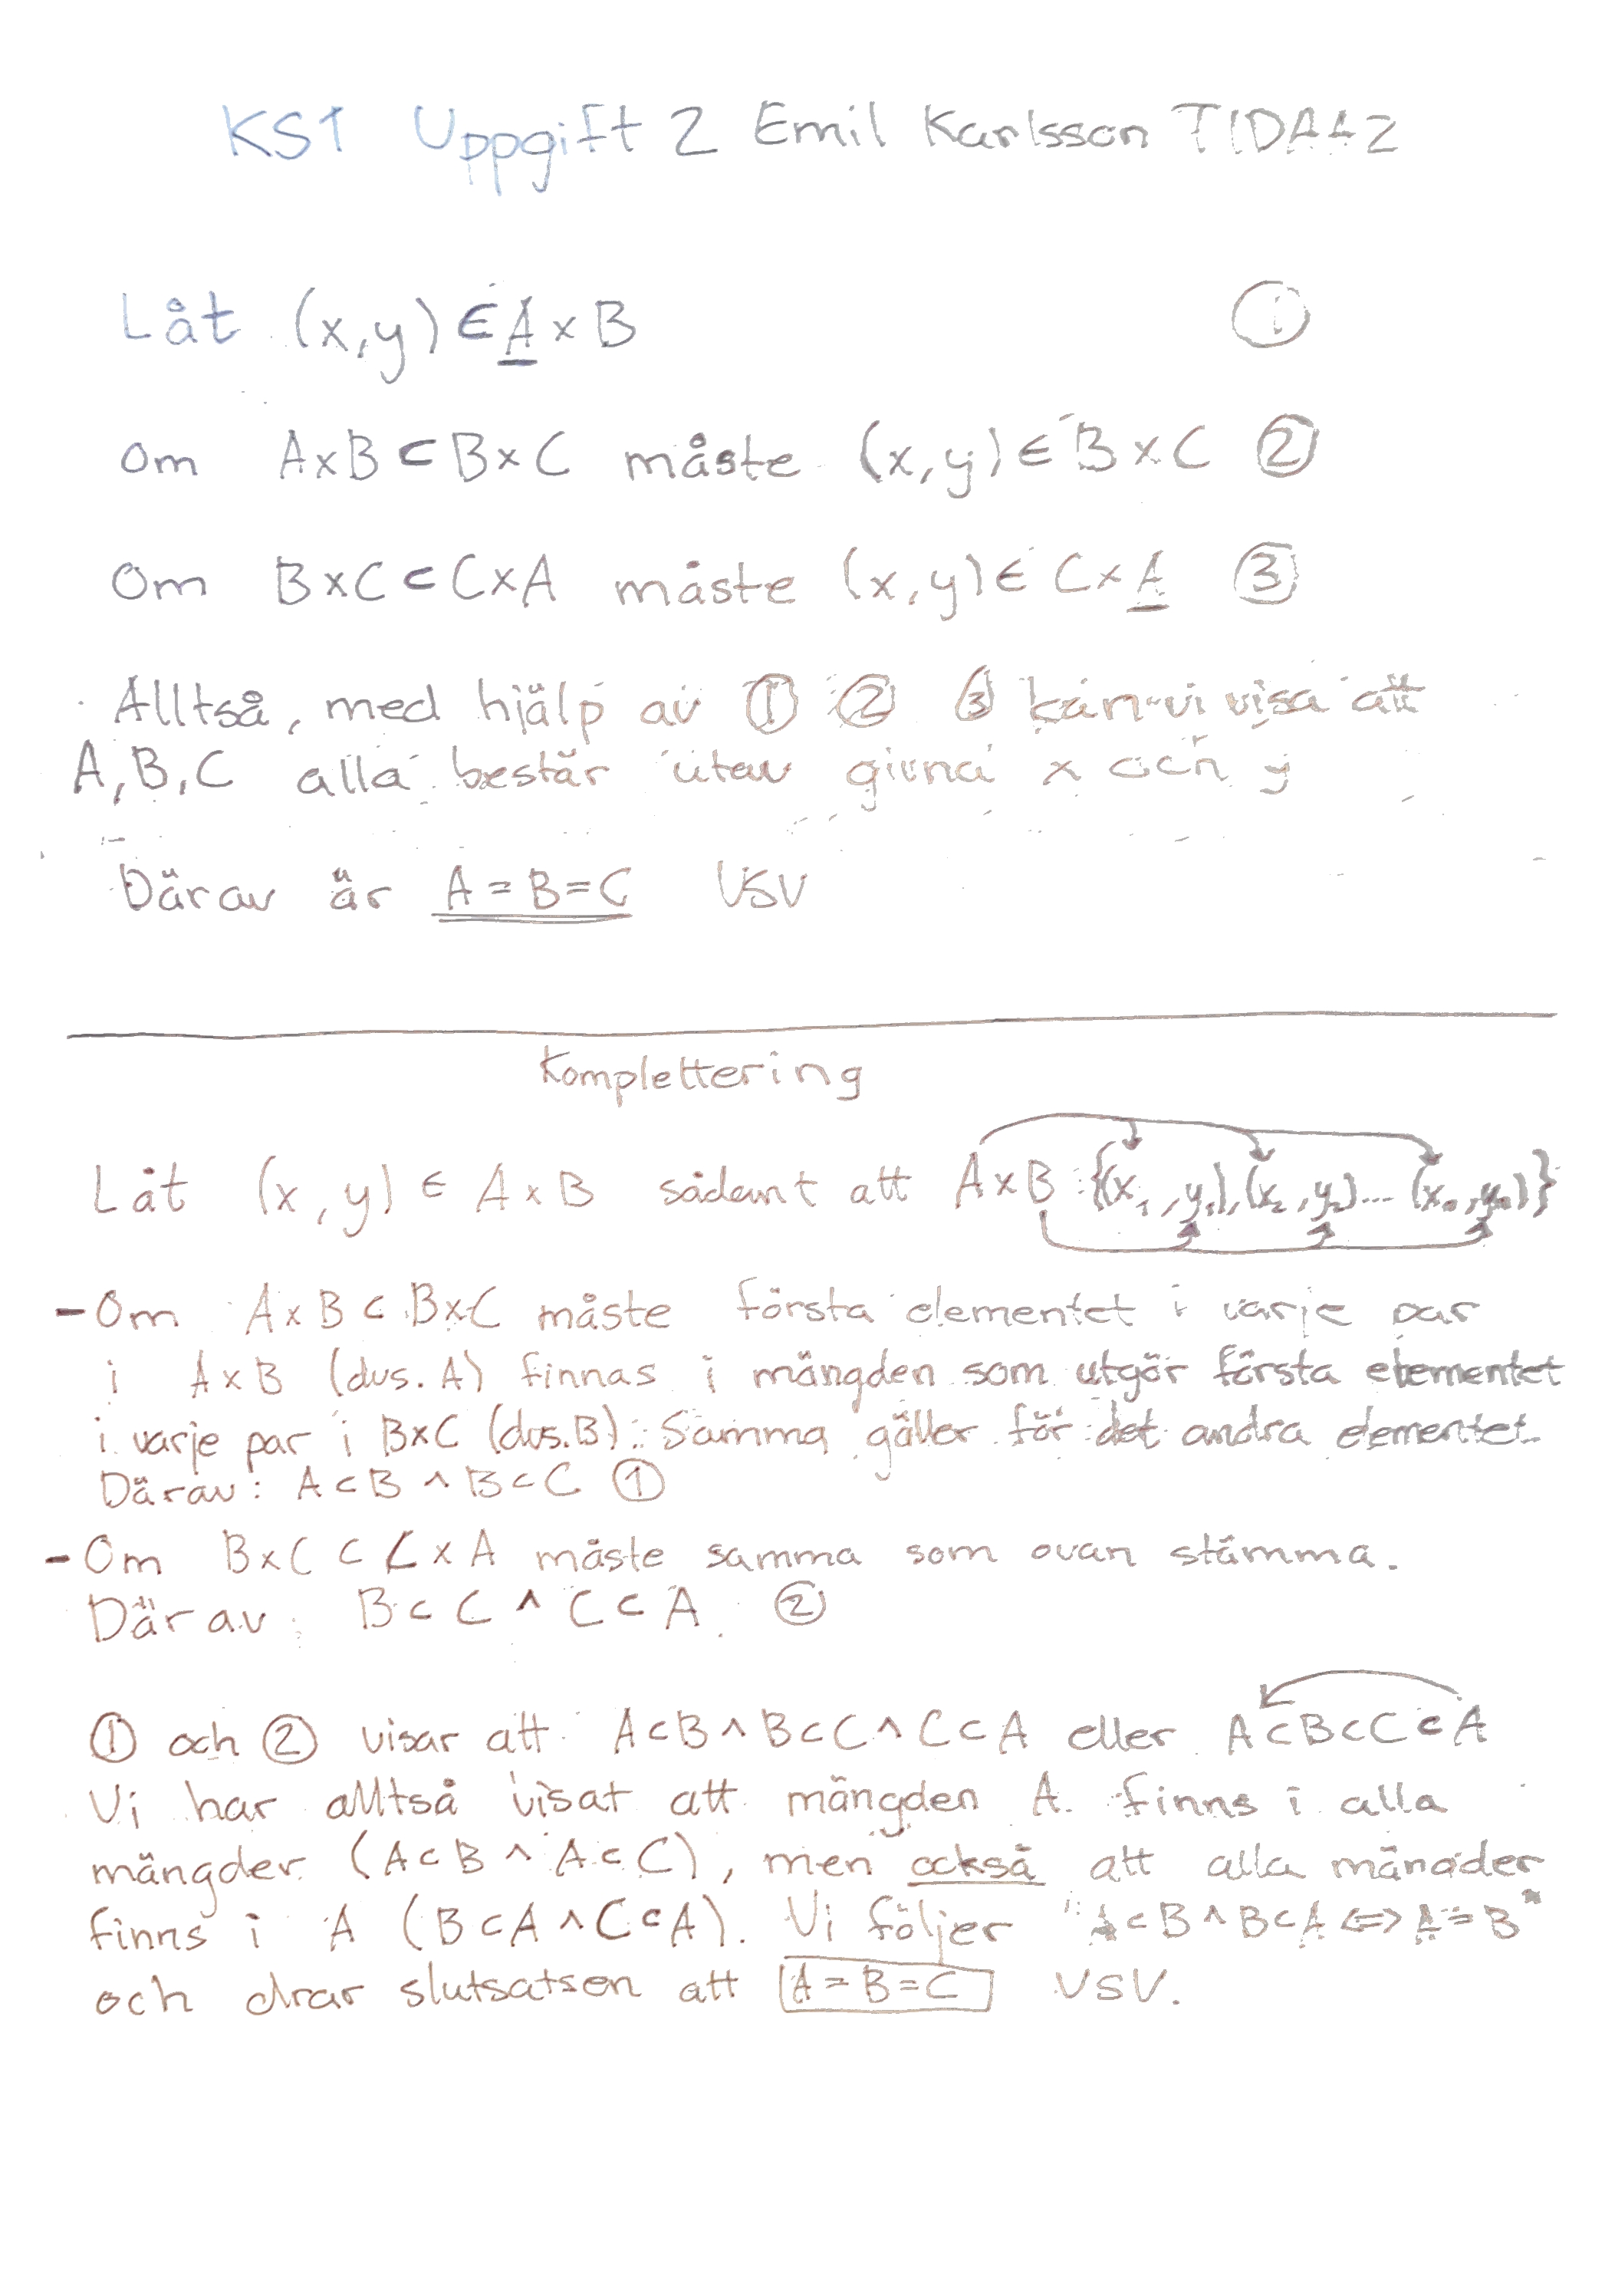 KS1 Uppgift 2 Emil Karlsson TIDAA2
Låt (x,y) ∈ A × B ①
Om A×B ⊂ B×C måste (x,y) ∈ B × C ②
Om B×C ⊂ C×A måste (x,y) ∈ C × A ③
Alltså, med hjälp av ① ② ③ kan vi visa att
A, B, C alla består utav givna x och y
Därav är A = B = C VSV
Komplettering
Låt (x,y) ∈ A × B sådant att A × B : {(x₁, y₁), (x₂, y₂) ... (xₙ, yₙ)}
- Om A × B ⊂ B×C måste första elementet i varje par
i A × B (dvs. A) finnas i mängden som utgör första elementet
i varje par i B×C (dvs. B). Samma gäller för det andra elementet.
Därav: A ⊂ B ∧ B ⊂ C ①
- Om B × C ⊂ C × A måste samma som ovan stämma.
Därav: B ⊂ C ∧ C ⊂ A. ②
① och ② visar att A⊂B ∧ B⊂C ∧ C⊂A eller A⊂B⊂C⊂A
Vi har alltså visat att mängden A finns i alla
mängder (A⊂B ∧ A⊂C), men också att alla mängder
finns i A (B⊂A ∧ C⊂A). Vi följer "A⊂B ∧ B⊂A ⇔ A=B"
och drar slutsatsen att A = B = C VSV.